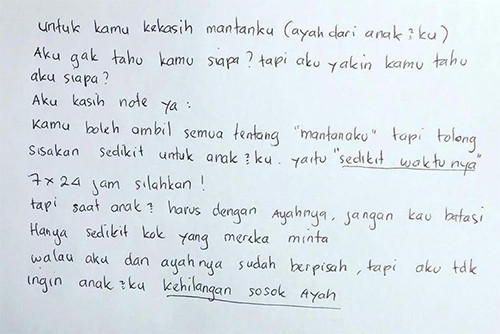 untuk kamu kekasih mantanku (ayah dari anak²ku)
Aku gak tahu kamu siapa? tapi aku yakin kamu tahu
aku siapa?
Aku kasih note ya :
Kamu boleh ambil semua tentang "mantanaku" tapi tolong
sisakan sedikit untuk anak²ku. yaitu "sedikit waktunya"
7x24 jam silahkan !
tapi saat anak² harus dengan Ayahnya, jangan kau batasi
Hanya sedikit kok yang mereka minta
walau aku dan ayahnya sudah berpisah, tapi aku tdk
ingin anak²ku kehilangan sosok Ayah